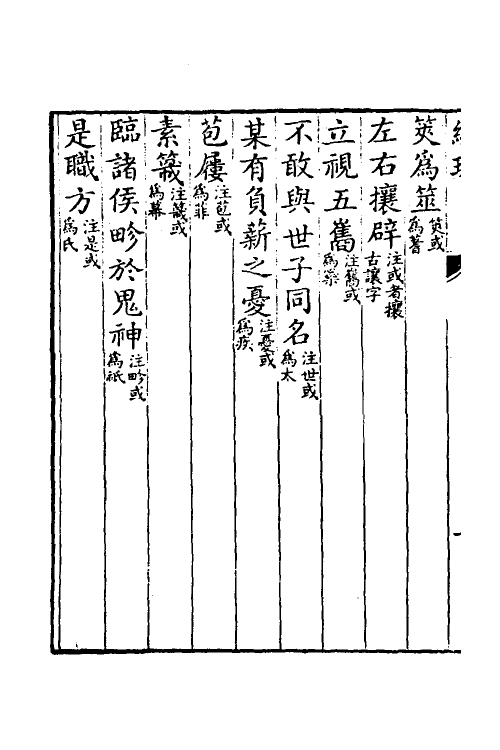 筴爲筮 筴或爲蓍
左右攘辟 注或者攘古讓字
立視五巂 注巂或爲蘂
不敢與世子同名 注世或爲太
某有負薪之憂 注憂或爲疾
苞屨 注苞或爲菲
素簚 注簚或爲冪
臨諸侯畛於鬼神 注畛或爲祇
是職方 注是或爲氏